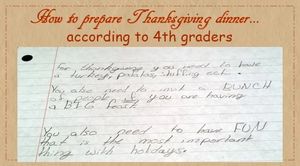 How to prepare Thanksgiving dinner...
according to 4th graders
For thanksgiving you need to have
a turkey, potatos, stuffing ect.
You also need to invit a BUNCH
of people if you are having
a BIG feast
You also need to have FUN
that is the most important
thing with holidays.